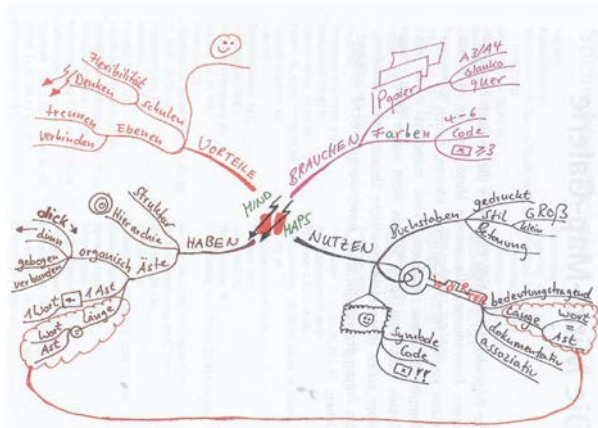 MIND
MAPS
VORTEILE
schulen
Flexibilität
Denken
Ebenen
trennen
verbinden
BRAUCHEN
Papier
A3/A4
blanko
quer
Farben
4-6
Code
≥3
HABEN
Struktur
Hierarchie
Äste
organisch
dick
dünn
gebogen
verbunden
1 Wort
1 Ast
Länge
Wort
Ast
NUTZEN
Buchstaben
gedruckt
Stil
GROß
klein
Betonung
WÖRTER
bedeutungstragend
Länge
Wort
=
Ast
dokumentativ
assoziativ
Symbole
Code
!?